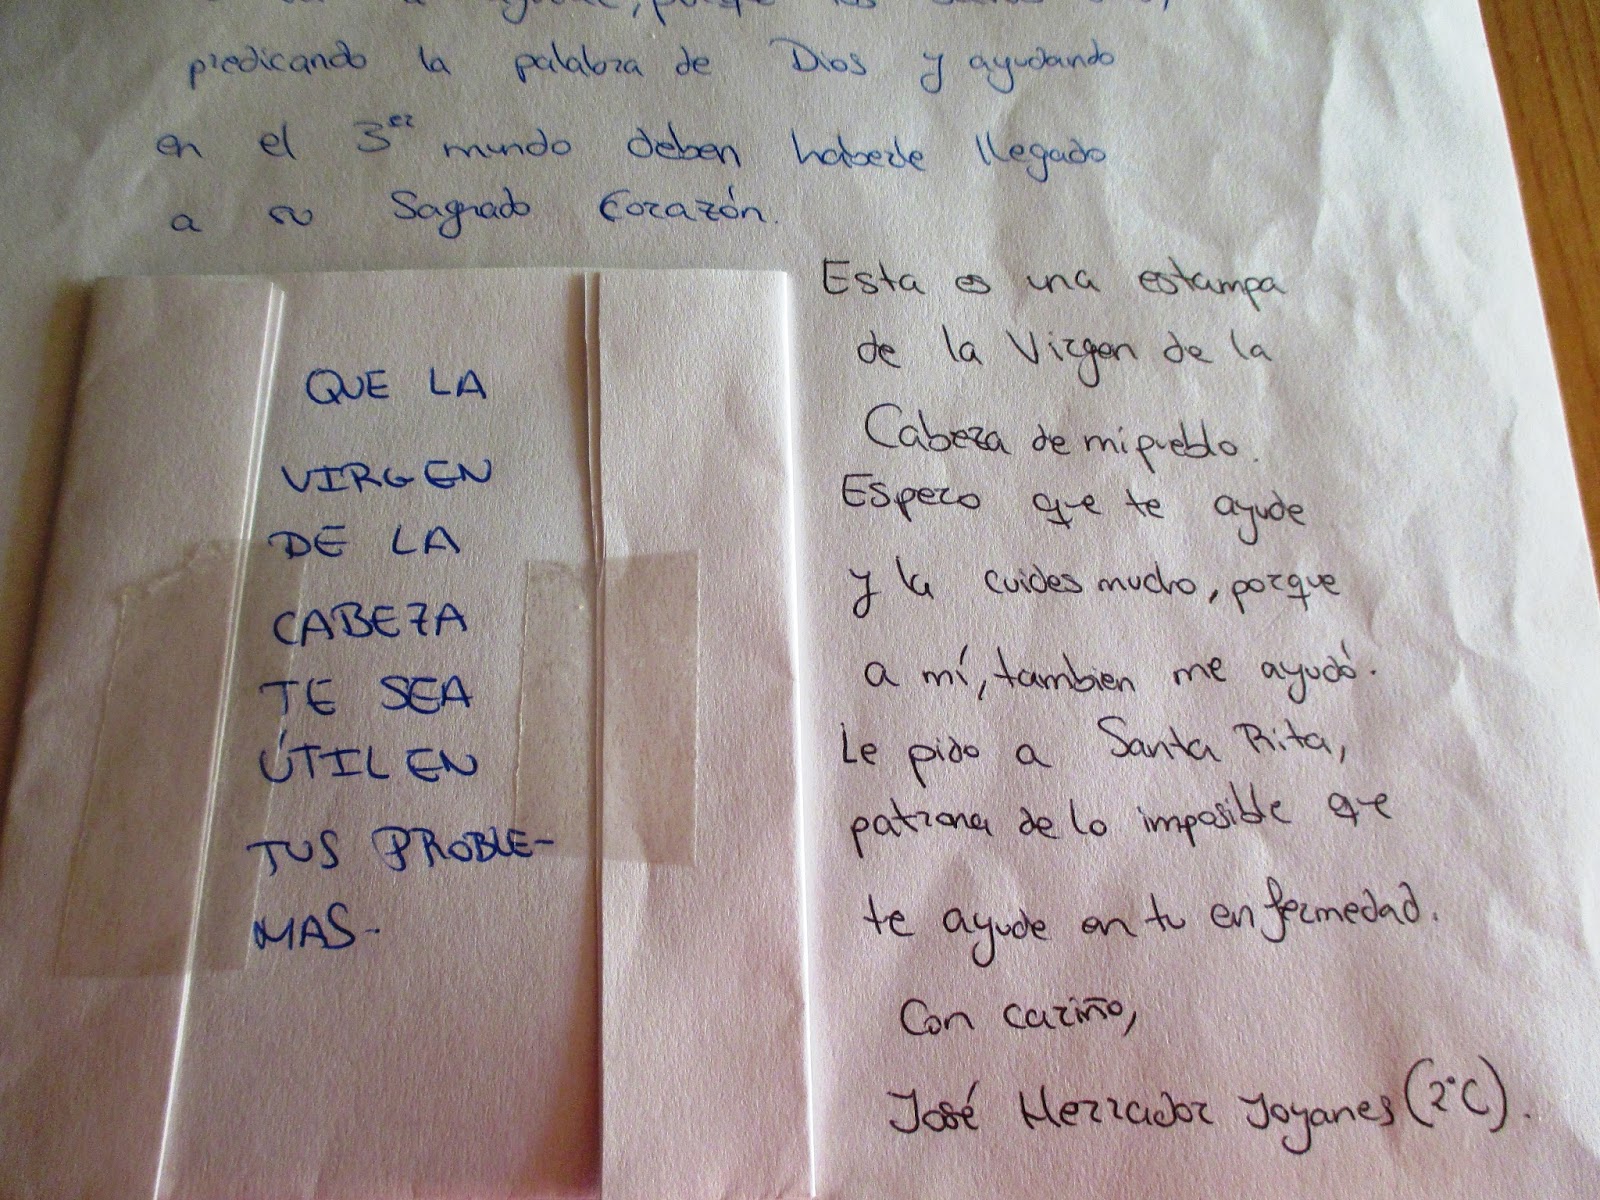 predicando la palabra de Dios y ayudando
en el 3er mundo deben haberle llegado
a su Sagrado Corazón.
QUE LA
VIRGEN
DE LA
CABEZA
TE SEA
ÚTIL EN
TUS PROBLE-
MAS-
Esta es una estampa
de la Virgen de la
Cabeza de mi pueblo.
Espero que te ayude
y la cuides mucho, porque
a mí, tambien me ayudó.
Le pido a Santa Rita,
patrona de lo imposible que
te ayude en tu enfermedad.
Con cariño,
José Herrador Joyanes (2°C).